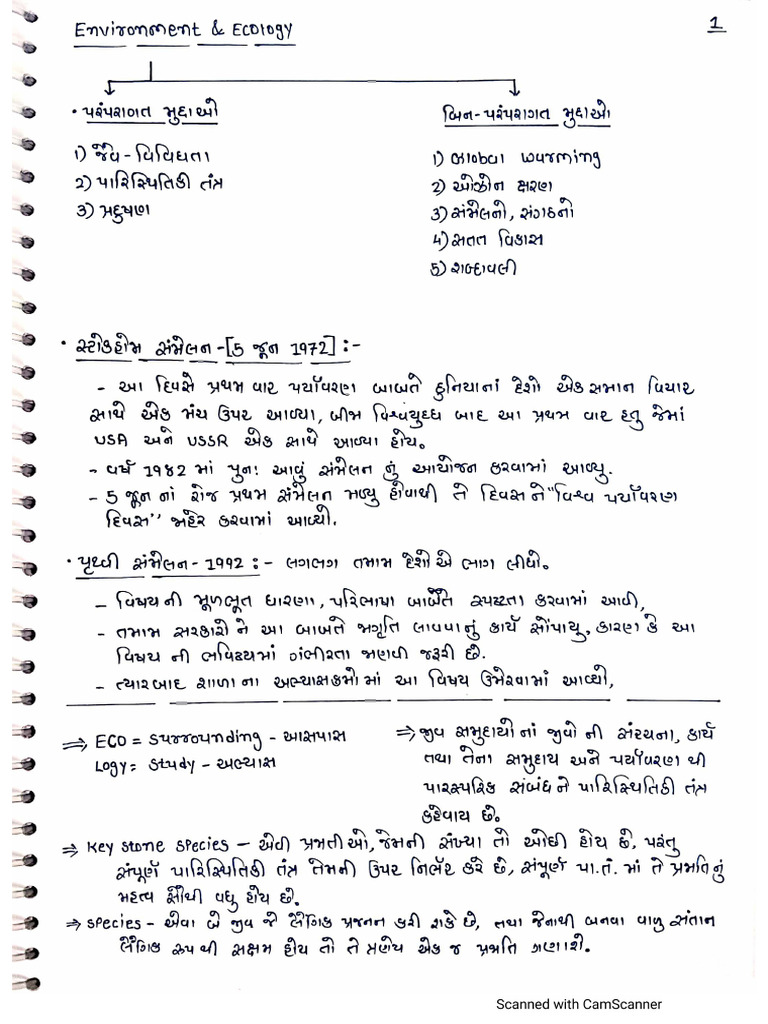 Environment & Ecology
1
• પરંપરાગત મુદ્દાઓ
બિન-પરંપરાગત મુદ્દાઓ
1) જૈવ-વિવિધતા
2) પારિસ્થિતિકી તંત્ર
3) પ્રદુષણ
1) Global warming
2) ઓઝોન ક્ષરણ
3) સંમેલનો, સંગઠનો
4) સતત વિકાસ
5) શબ્દાવલી
• સ્ટોકહોમ સંમેલન-[5 જૂન 1972] :-
- આ દિવસે પ્રથમ વાર પર્યાવરણ બાબતે દુનિયાનાં દેશો એક સમાન વિચાર
સાથે એક મંચ ઉપર આવ્યા, બીજા વિશ્વયુદ્ધ બાદ આ પ્રથમ વાર હતુ જેમાં
USA અને USSR એક સાથે આવ્યા હોય.
- વર્ષ 1982 માં પુનઃ આવું સંમેલન નું આયોજન કરવામાં આવ્યુ.
- 5 જૂન નાં રોજ પ્રથમ સંમેલન મળ્યુ હોવાથી તે દિવસ ને "વિશ્વ પર્યાવરણ
દિવસ" જાહેર કરવામાં આવ્યો.
• પૃથ્વી સંમેલન-1992 :- લગભગ તમામ દેશો એ ભાગ લીધો.
- વિષય ની મૂળભૂત ધારણા, પરિભાષા બાબતે સ્પષ્ટતા કરવામાં આવી,
- તમામ સરકારો ને આ બાબતે જાગૃતિ લાવવાનું કાર્ય સોંપાયુ, કારણ કે આ
વિષય ની ભવિષ્યમાં ગંભીરતા જાણવી જરૂરી છે.
- ત્યારબાદ શાળા ના અભ્યાસક્રમો માં આ વિષય ઉમેરવામાં આવ્યો,
⇒ ECO = Surrounding - આસપાસ
Logy = Study - અભ્યાસ
⇒ જીવ સમુદાયોનાં જીવો ની સંરચના, કાર્ય
તથા તેના સમુદાય અને પર્યાવરણ થી
પારસ્પરિક સંબંધ ને પારિસ્થિતિકી તંત્ર
કહેવાય છે.
⇒ Key stone species - એવી પ્રજાતીઓ, જેમની સંખ્યા તો ઓછી હોય છે, પરંતુ
સંપૂર્ણ પારિસ્થિતિકી તંત્ર તેમની ઉપર નિર્ભર કરે છે, સંપૂર્ણ પા.તં. માં તે પ્રજાતિ નું
મહત્વ સૌથી વધુ હોય છે.
⇒ Species - એવા બે જીવ જે લૈંગિક પ્રજનન કરી શકે છે, તથા જેનાથી બનવા વાળુ સંતાન
લૈંગિક રુપ થી સક્ષમ હોય તો તે ત્રણેય એક જ પ્રજાતિ ગણાશે.
Scanned with CamScanner